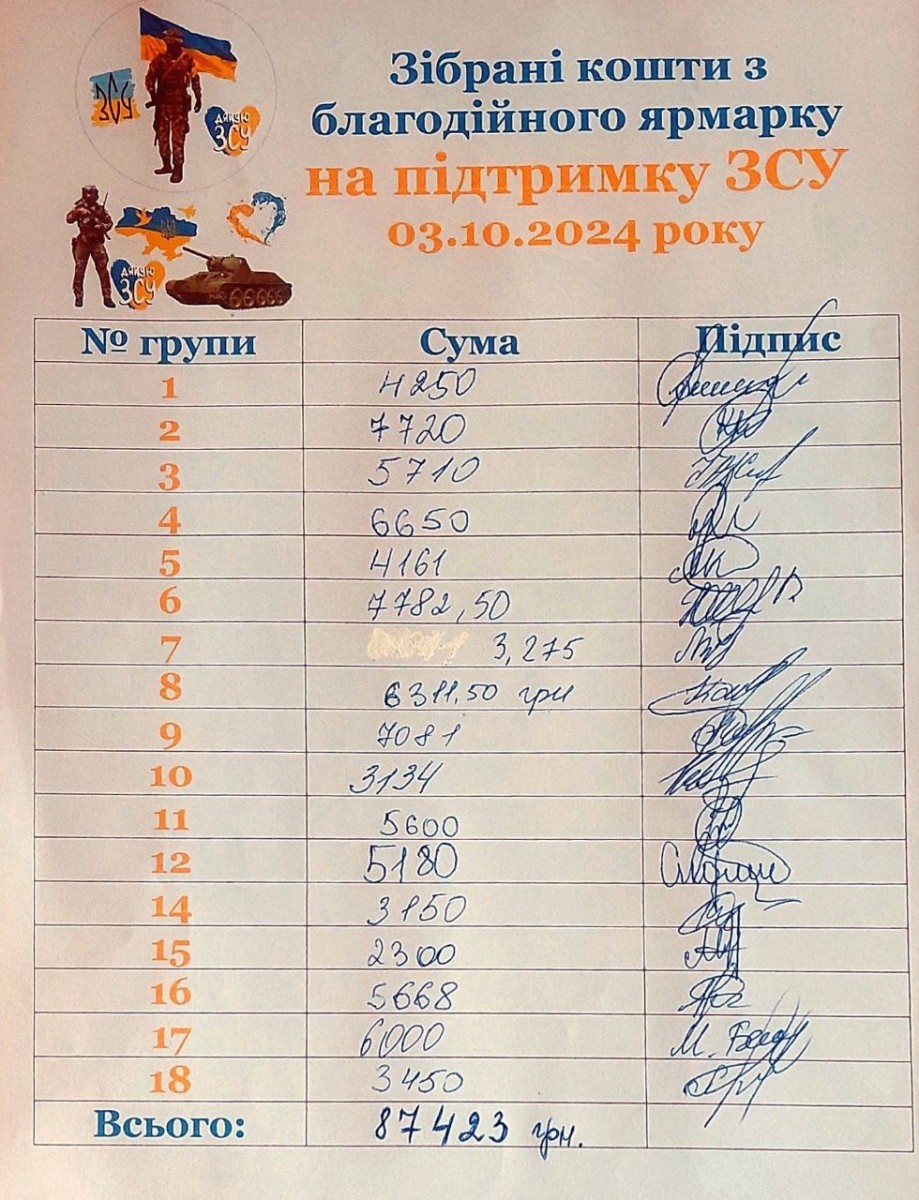 ЗСУ
ДЯКУЮ
ЗСУ
ДЯКУЮ
ЗСУ
Зібрані кошти з
благодійного ярмарку
на підтримку ЗСУ
03.10.2024 року
№ групи Сума Підпис
1 4250
2 7720
3 5710
4 6650
5 4161
6 7782,50
7 3,275
8 6311,50 грн
9 7081
10 3134
11 5600
12 5180
14 3150
15 2300
16 5668
17 6000
18 3450
Всього: 87423 грн.